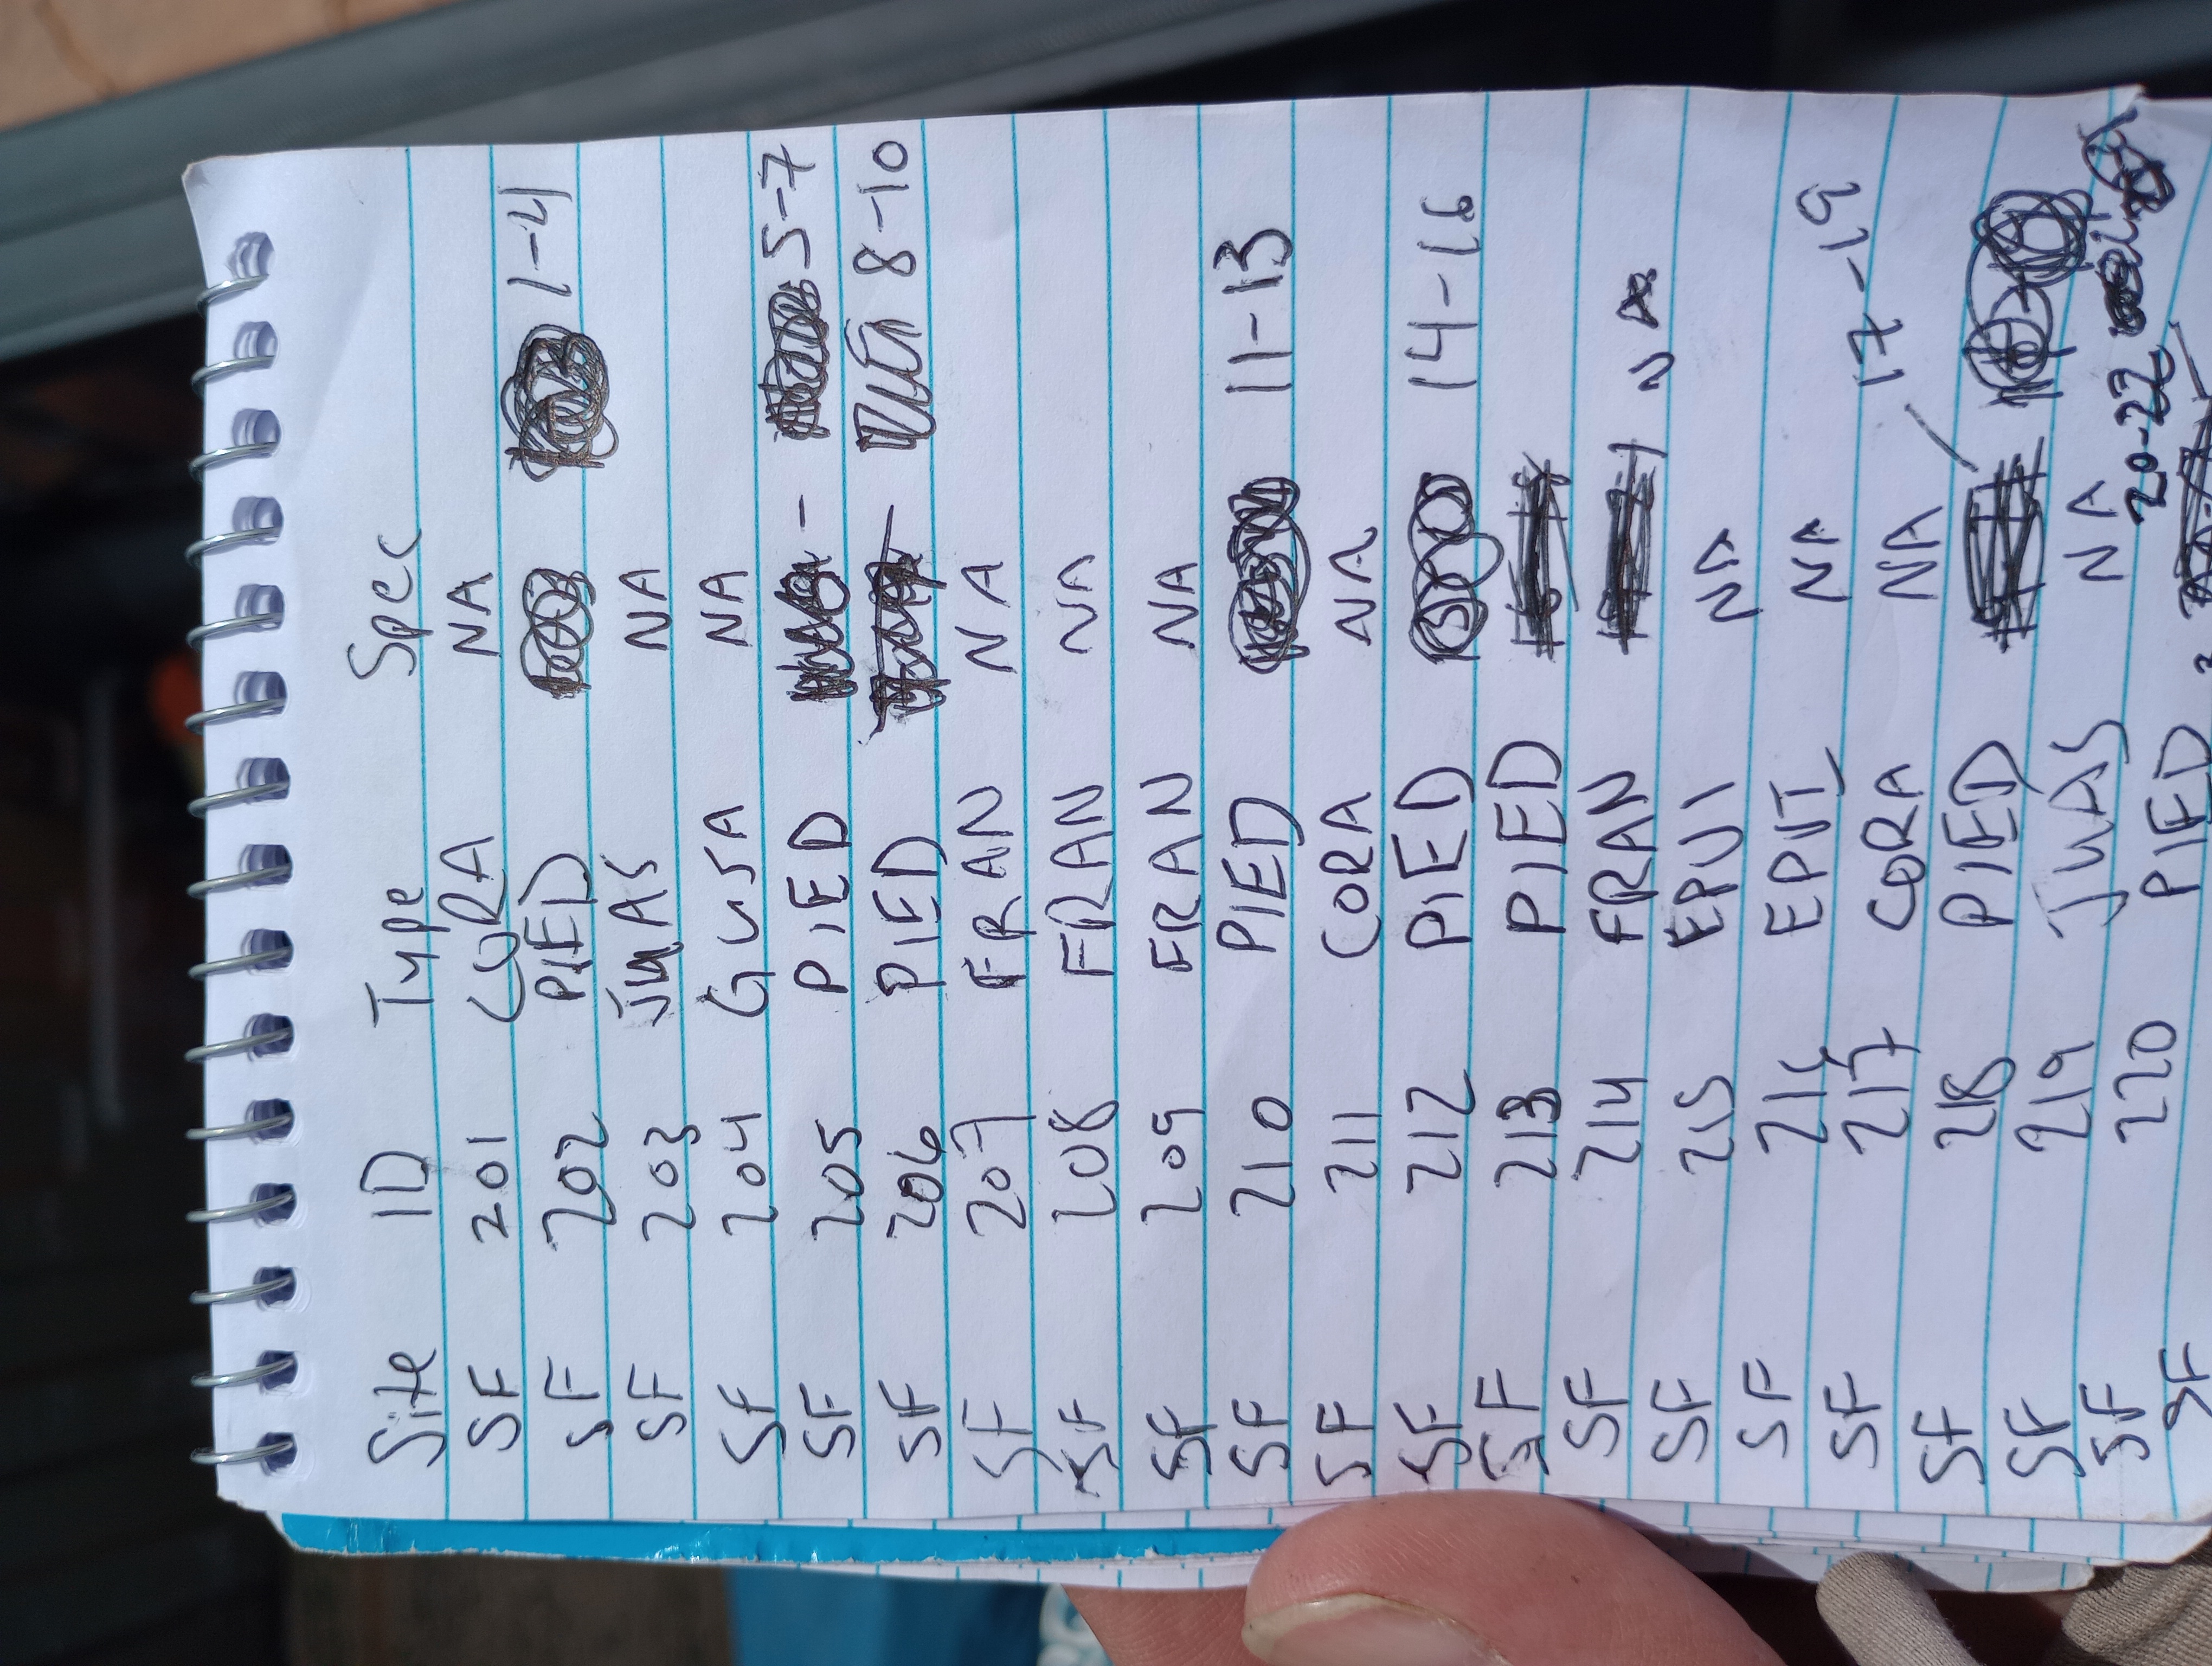 Site ID Type Spec
SF 201 CORA NA
SF 202 PIED 1-4
SF 203 JUAS NA
SF 204 GUSA NA
SF 205 PIED - 5-7
SF 206 PIED 8-10
SF 207 FRAN NA
SF 208 FRAN NA
SF 209 FRAN NA
SF 210 PIED 11-13
SF 211 CORA NA
SF 212 PIED 14-16
SF 213 PIED
SF 214 FRAN NA
SF 215 EPVI NA
SF 216 EPVI NA
SF 217 CORA NA
SF 218 PIED 17-19
SF 219 JUAS NA
SF 220 PIED 20-22
SF